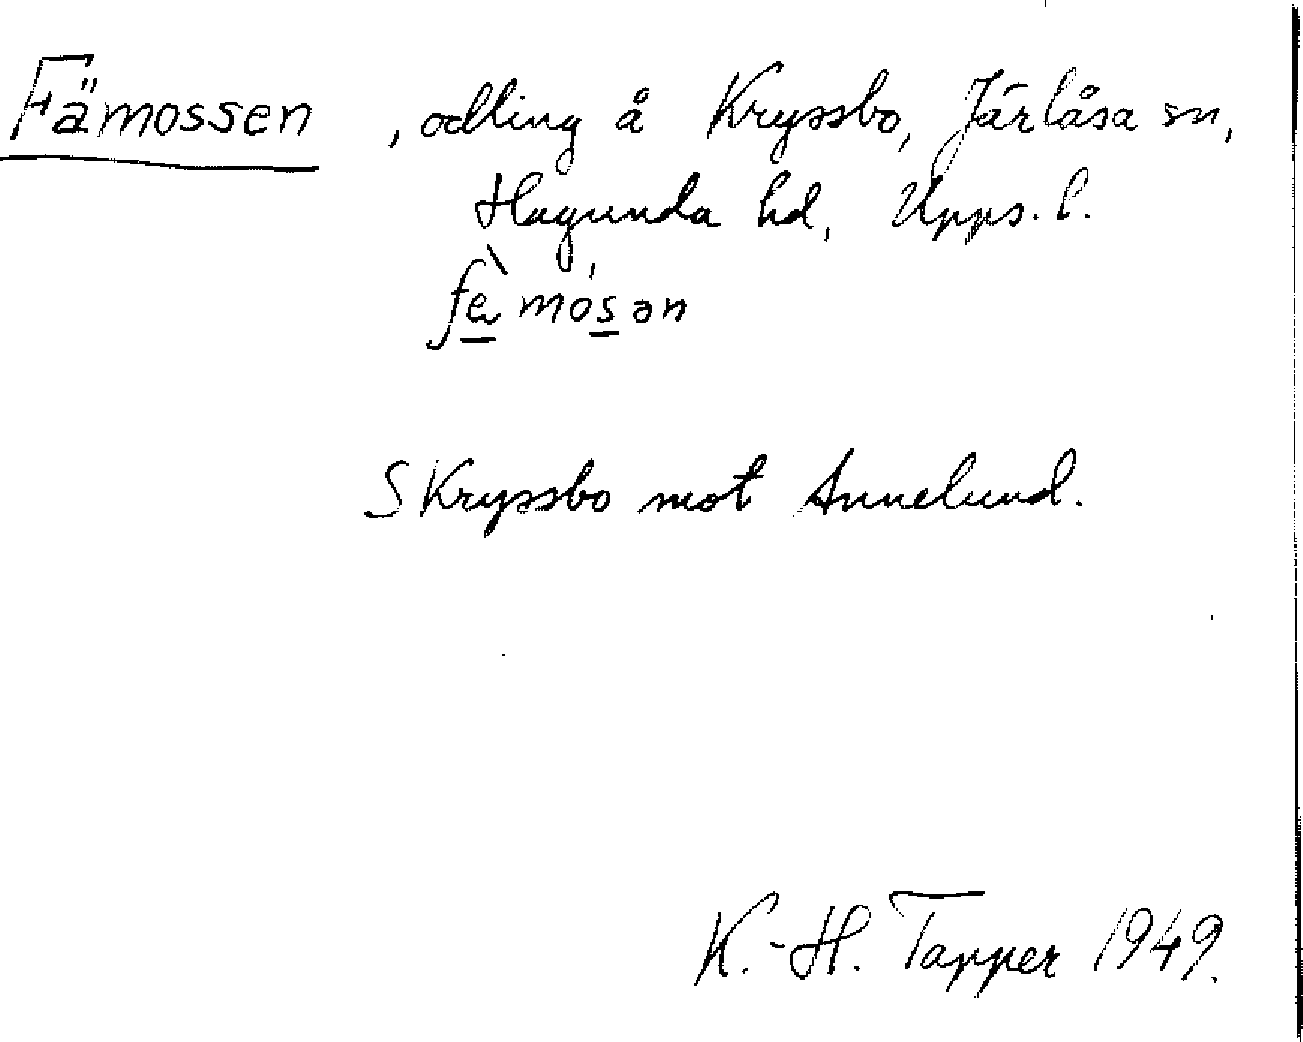 Fämossen, odling å Kryssbo, Järlåsa sn,
Hagunda hd, Upps. l.
fè̱ mós̱ən
S Kryssbo mot Annelund.
K.-H. Tapper 1949.